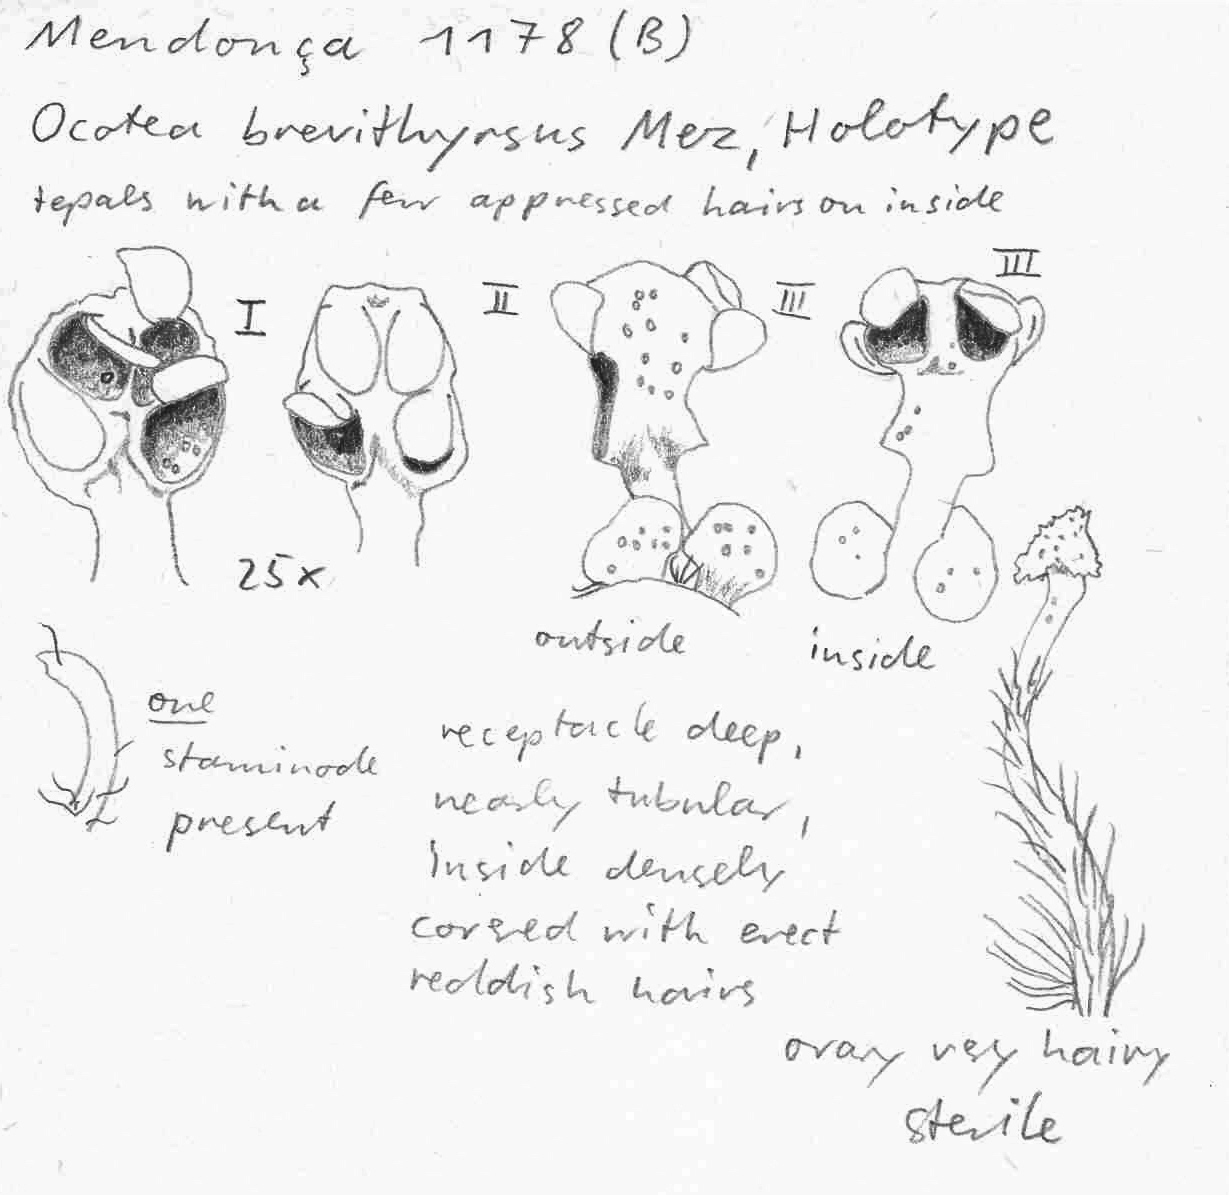 Mendonça 1178 (B)
Ocotea brevithyrsus Mez, Holotype
tepals with a few appressed hairs on inside
I
II
III
III
25x
outside
inside
one
staminode
present
receptacle deep,
nearly tubular,
Inside densely
covered with erect
reddish hairs
ovary very hairy
sterile